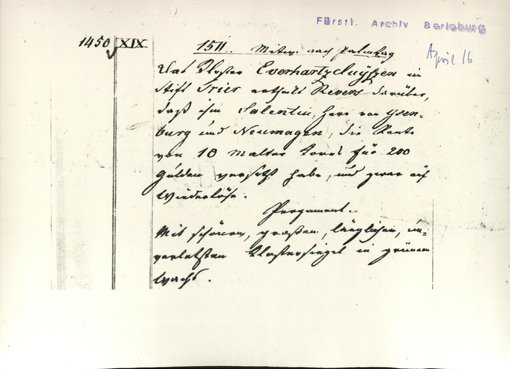 Fürstl. Archiv Berleburg
April 16
1450 XIX 1511. Mittw. nach Palmtag
Das Kloster Everhartzcluyßen in
Stift Trier enthält Revers darüber,
daß ihm Salentin, Herr von Ysen-
burg und Neumagen, die Rente
von 10 Malter Korns für 200
Gulden versetzt habe, und zwar auf
Wiederlöse.
Pergament.
Mit schönem, großen, länglichen, un-
verletzten Klostersiegel in grünem
Wachs.